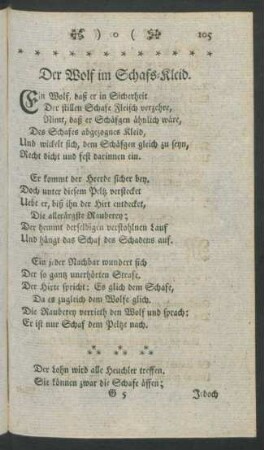 ) o ( 105
Der Wolf im Schafs-Kleid.
Ein Wolf, daß er in Sicherheit
Der stillen Schafe Fleisch verzehre,
Nimt, daß er Schäfgen ähnlich wäre,
Des Schafes abgezognes Kleid,
Und wickelt sich, dem Schäfgen gleich zu seyn,
Recht dicht und fest darinnen ein.
Er kommt der Heerde sicher bey,
Doch unter diesem Peltz verstecket
Uebt er, biß ihn der Hirt entdecket,
Die allerärgste Rauberey;
Der hemmt derselbigen verstohlnen Lauf
Und hängt das Schaf des Schadens auf.
Ein jeder Nachbar wundert sich
Der so gantz unerhörten Strafe.
Der Hirte spricht: Es glich dem Schafe,
Da es zugleich dem Wolfe glich.
Die Rauberey verrieth den Wolf und sprach:
Er ist nur Schaf dem Peltze nach.
Der Lohn wird alle Heuchler treffen,
Sie können zwar die Schafe äffen;
G 5 Jedoch